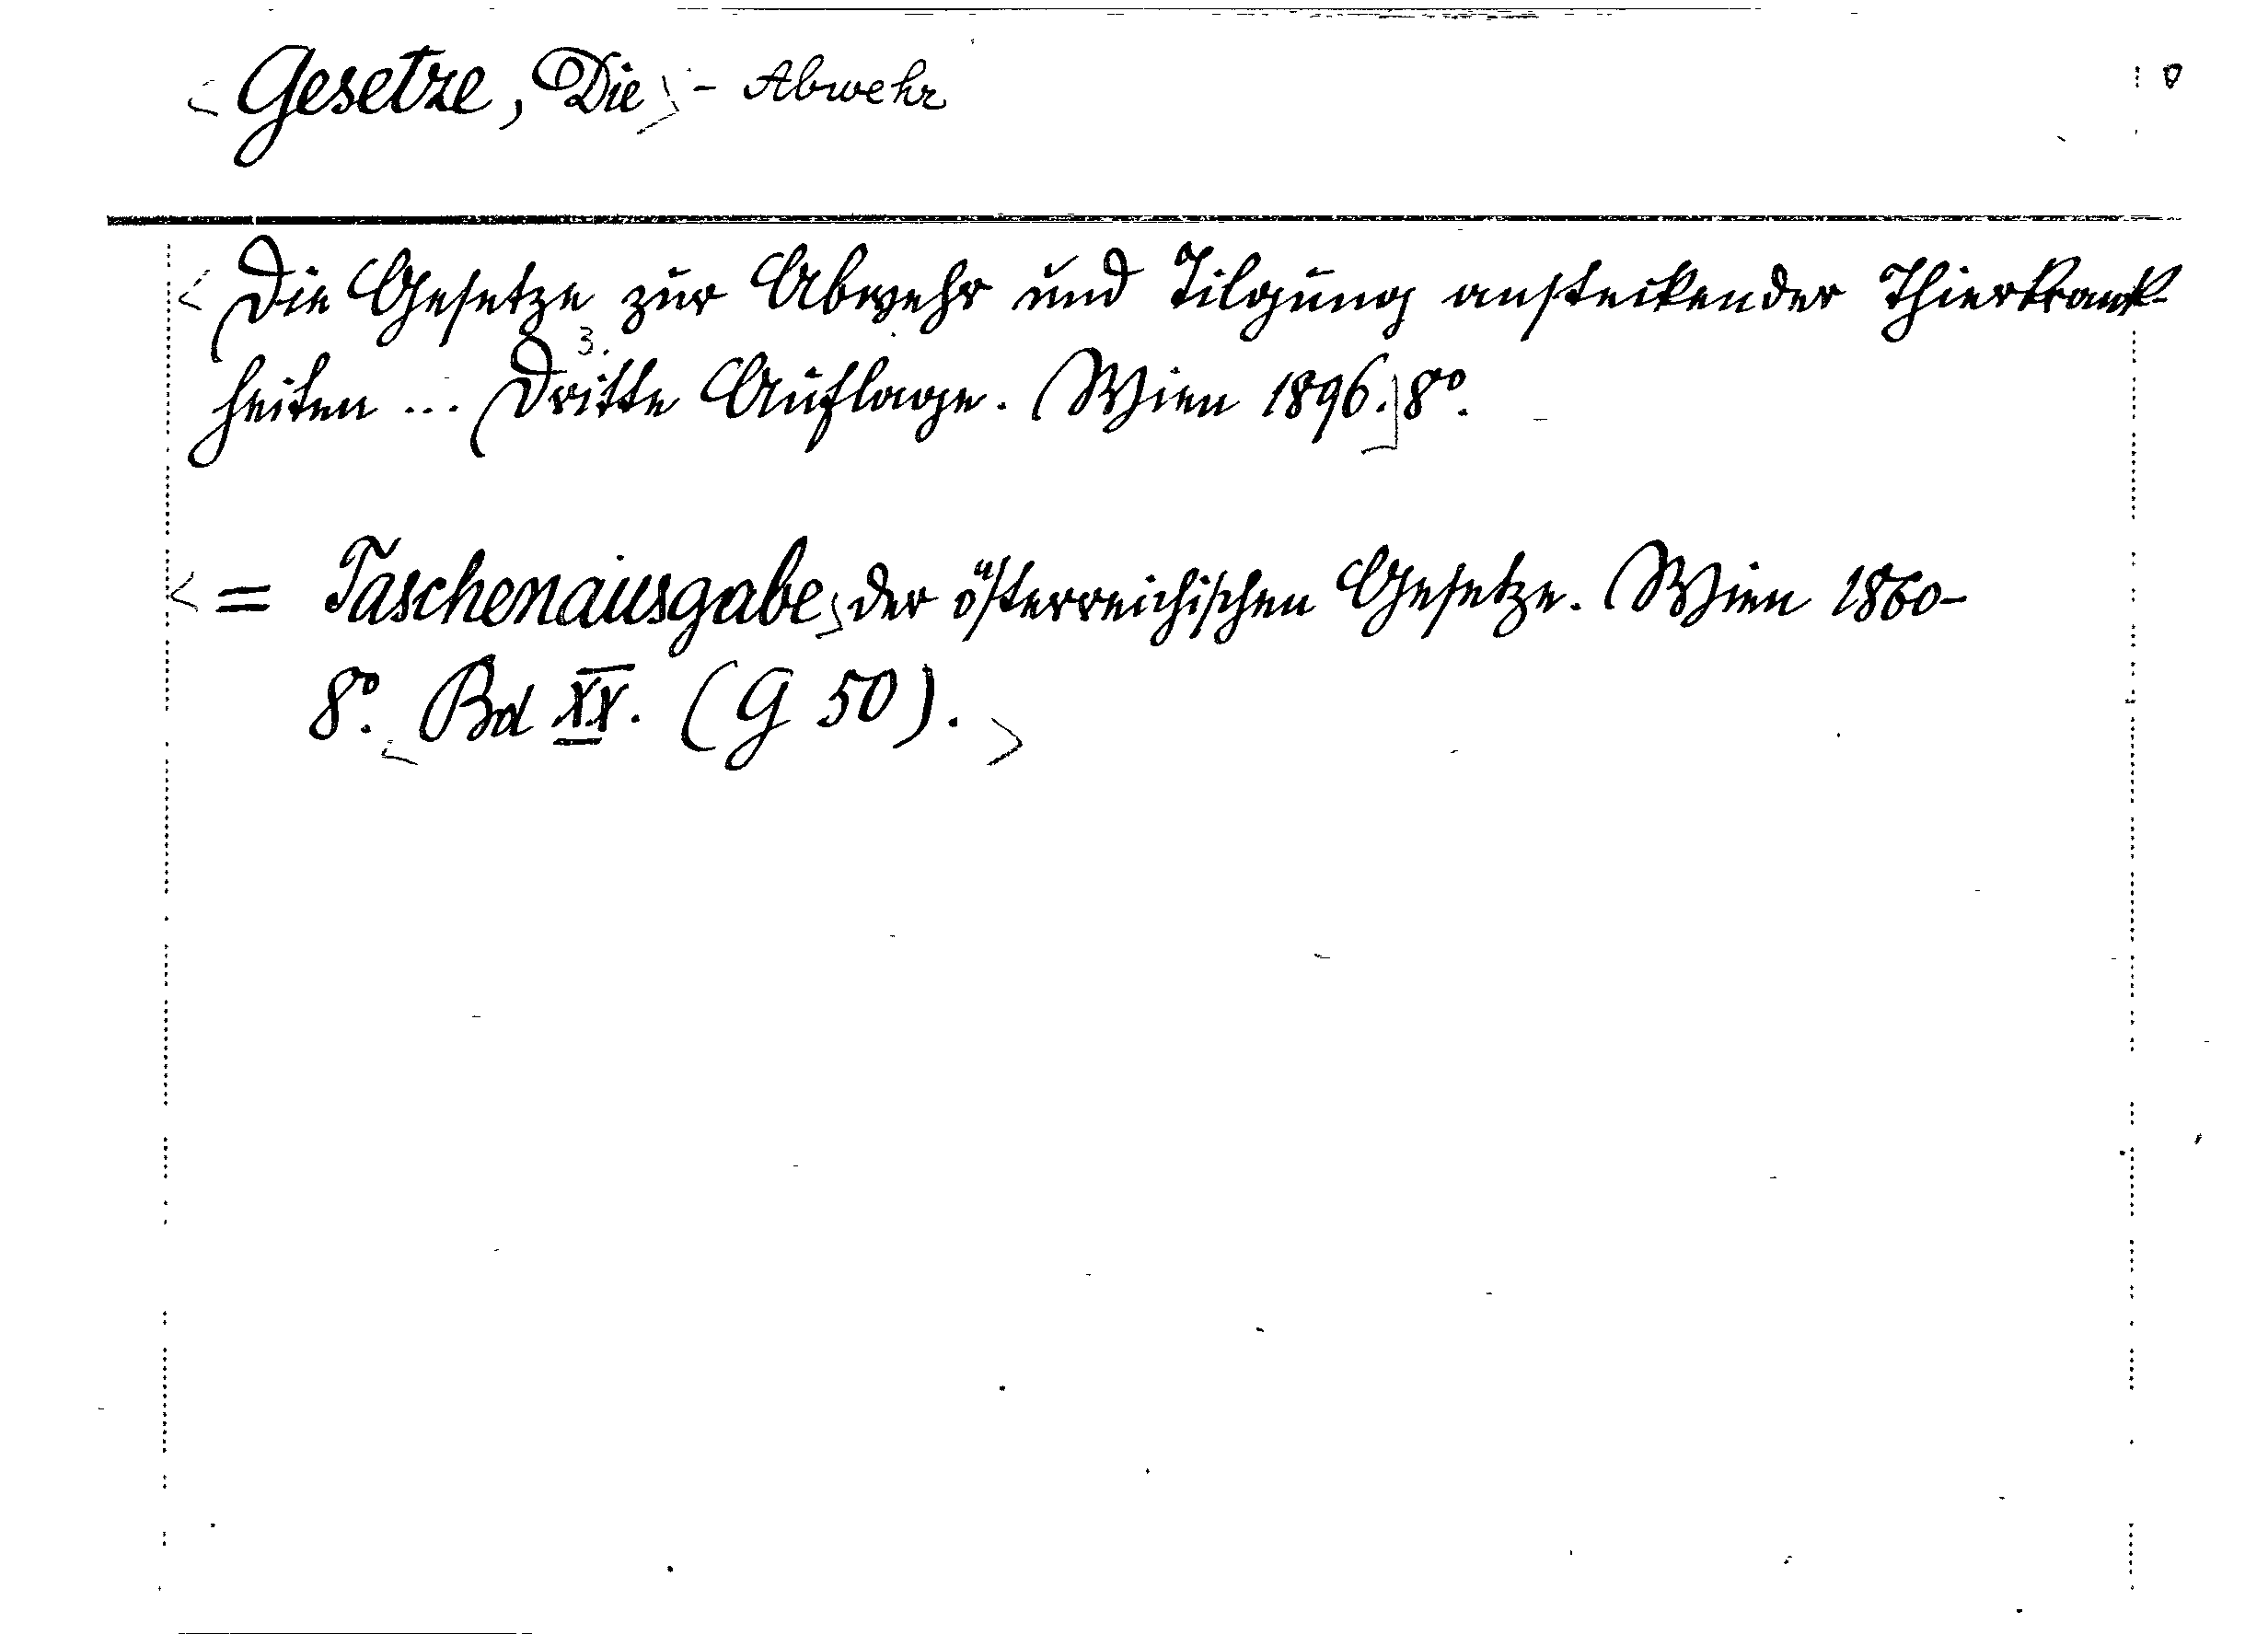 < Gesetze, Die > - Abwehr
< Die Gesetze zur Abwehr und Tilgung ansteckender Thierkrank-
3.
heiten ... Dritte Auflage. Wien 1896.] 8º.
< = Taschenausgabe > der österreichischen Gesetze. Wien 1860-
8º. < Bd XX. (G 50). >